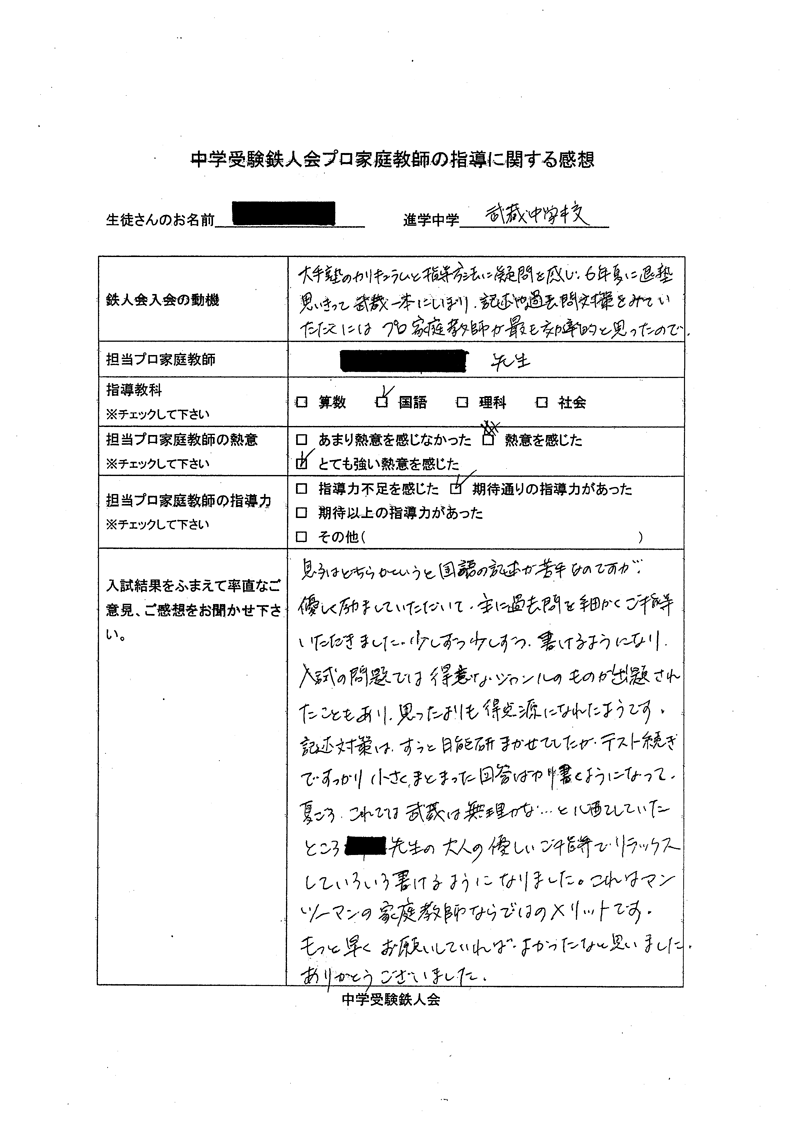 中学受験鉄人会プロ家庭教師の指導に関する感想
生徒さんのお名前 進学中学 武蔵中学校
鉄人会入会の動機
大手塾のカリキュラムと指導方法に疑問を感じ、6年夏に退塾
思いきって武蔵一本にしぼり、記述や過去問対策をみてい
ただくにはプロ家庭教師が最も効率的と思ったので。
担当プロ家庭教師
先生
指導教科
※チェックして下さい
□ 算数 ☑ 国語 □ 理科 □ 社会
担当プロ家庭教師の熱意
※チェックして下さい
□ あまり熱意を感じなかった □ 熱意を感じた
☑ とても強い熱意を感じた
担当プロ家庭教師の指導力
※チェックして下さい
□ 指導力不足を感じた ☑ 期待通りの指導力があった
□ 期待以上の指導力があった
□ その他( )
入試結果をふまえて率直なご
意見、ご感想をお聞かせ下さ
い。
息子はどちらかというと国語の記述が苦手なのですが、
優しく励ましていただいて、主に過去問を細かくご指導
いただきました。少しずつ少しずつ、書けるようになり、
入試の問題では得意なジャンルのものが出題され
たこともあり、思ったよりも得点源になれたようです。
記述対策は、ずっと日能研まかせでしたが、テスト続き
ですっかり小さくまとまった回答ばかり書くようになって、
夏ころ、これでは武蔵は無理かな…と心配していた
ところ 先生の大人の優しいご指導でリラックス
していろいろ書けるようになりました。これはマン
ツーマンの家庭教師ならではのメリットです。
もっと早くお願いしていればよかったなと思いました。
ありがとうございました。
中学受験鉄人会